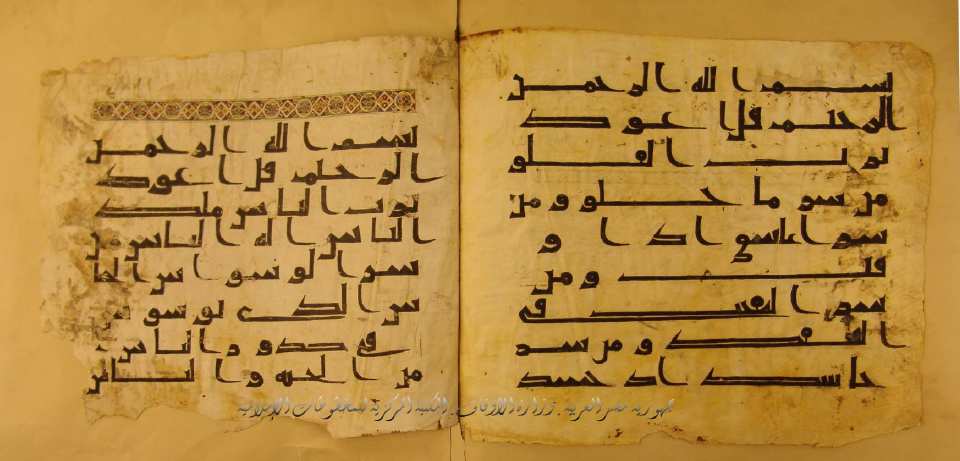 بسم الله الرحمن
الرحيم قل اعوذ
برب الفلق
من شر ما خلق و من
شر غاسق اذا و
قب و من
شر النفثت في
العقد و من شر
حاسد اذا حسد
بسم الله الرحمن
الرحيم قل اعوذ
برب الناس ملك
الناس اله الناس من
شر الوسواس الخنا
س الذي يوسوس
في صدور الناس
من الجنه و الناس
جمهورية مصر العربية - وزارة الأوقاف - المكتبة المركزية للمخطوطات الإسلامية